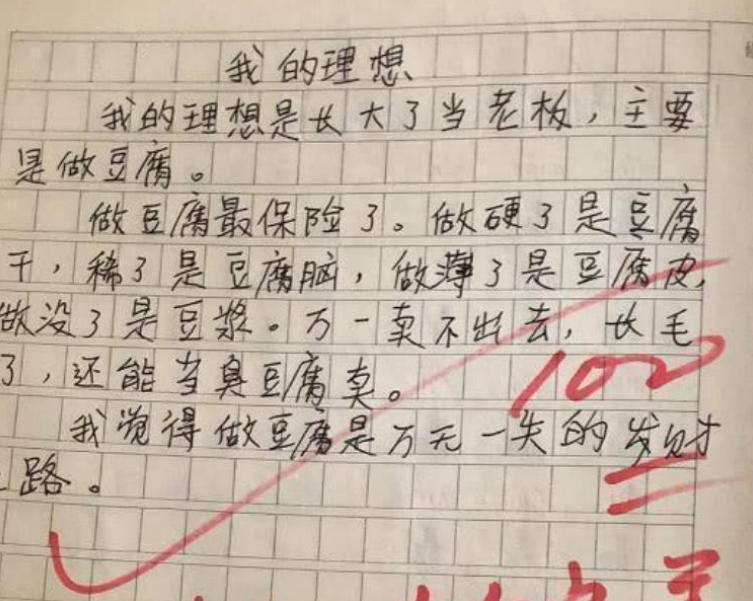 我的理想
我的理想是长大了当老板，主要
是做豆腐。
做豆腐最保险了。做硬了是豆腐
干，稀了是豆腐脑，做薄了是豆腐皮，
做没了是豆浆。万一卖不出去，长毛
了，还能当臭豆腐卖。
我觉得做豆腐是万无一失的发财
之路。
100